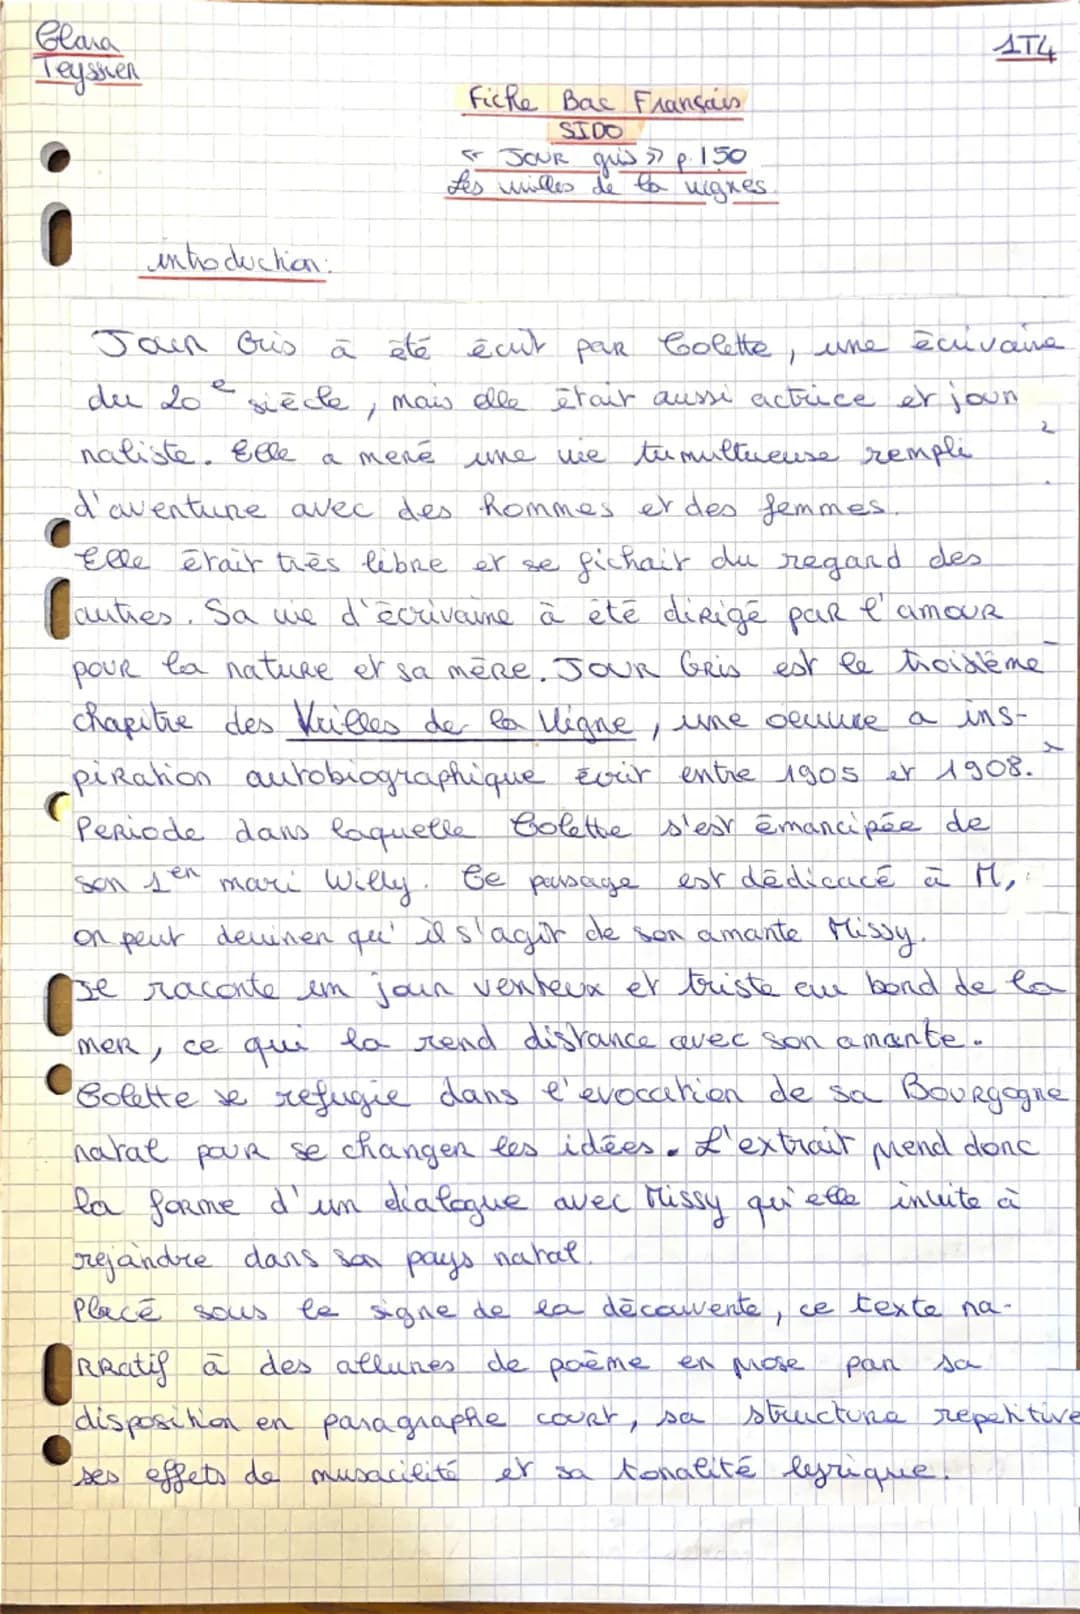 Clara
Teyssier
1T4
Fiche Bac Français
SIDO
« Jour gris » p.150
Les vrilles de la vignes
introduction:
Jour Gris à été écrit par Colette, une écrivaine
du 20e siècle, mais elle était aussi actrice et jour
naliste. Elle a mené une vie tumultueuse rempli
d'aventure avec des hommes et des femmes.
Elle était très libre et se fichait du regard des
autres. Sa vie d'écrivaine à été dirigé par l'amour
pour la nature et sa mère. Jour Gris est le troisième
chapitre des Vrilles de la Vigne, une oeuvre a ins-
piration autobiographique écrit entre 1905 et 1908.
Periode dans laquelle Colette s'est émancipée de
son 1er mari Willy. Ce passage est dédicacé à M,
on peut deviner qu'il s'agit de son amante Missy.
Je raconte un jour venteux et triste au bord de la
mer, ce qui la rend distance avec son amante.
Colette se refugie dans l'evocation de sa Bourgogne
natal pour se changer les idées. L'extrait prend donc
la forme d'un dialogue avec Missy qu'elle invite à
rejoindre dans son pays natal.
Placé sous le signe de la découverte, ce texte na-
rratif à des allures de poème en prose par sa
disposition en paragraphe court, sa structure repetitive
ses effets de musacilité et sa tonalité lyrique.